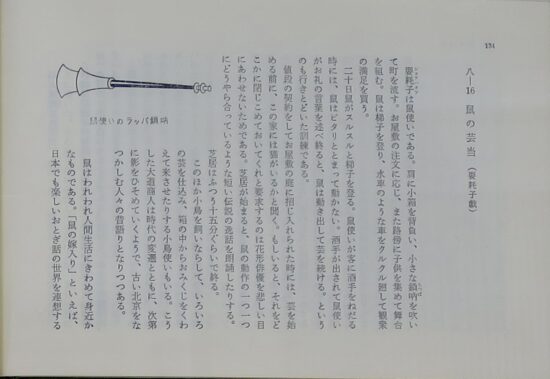 134
八―16 鼠の芸当（耍耗子戯）
耍耗子は鼠使いである。肩に小箱を背負い、小さな鎖吶を吹い
て町を流す。お屋敷の注文に応じ、また路傍に子供を集めて舞台
を組む。鼠は梯子を登り、水車のような車をクルクル廻して観衆
の満足を買う。
二十日鼠がスルスルと梯子を登る。鼠使いが客に酒手をねだる
時には、鼠はピタリととまって動かない。酒手が出されて鼠使い
がお礼の言葉を述べ終ると、鼠は動き出して芸を続ける。という
のも行きとどいた訓練である。
値段の契約をしてお屋敷の庭に招じ入れられた時には、芸を始
める前に、この家には猫がいるかと聞く。もしいると、それをど
こかに閉じこめておいてくれと要求するのは花形俳優を悲しい目
にあわせないためである。芝居が始まると、鼠の動作の一つ一つ
にどうやら合っているような短い伝説の逸話を朗誦したりする。
芝居はふつう十五分ぐらいで終る。
このほか小鳥を飼いならして、いろいろ
の芸を仕込み、箱の中からおみくじをくわ
えて来させたりする小鳥使いもいる。こう
した大道芸人は時代の変遷とともに、次第
に影をひそめていくようで、古い北京をな
つかしむ人々の昔語りとなりつつある。
鼠はわれわれ人間生活にきわめて身近か
なものである。「鼠の嫁入り」といえば、
日本でも楽しいおとぎ話の世界を連想する
鼠使いのラッパ鎖吶